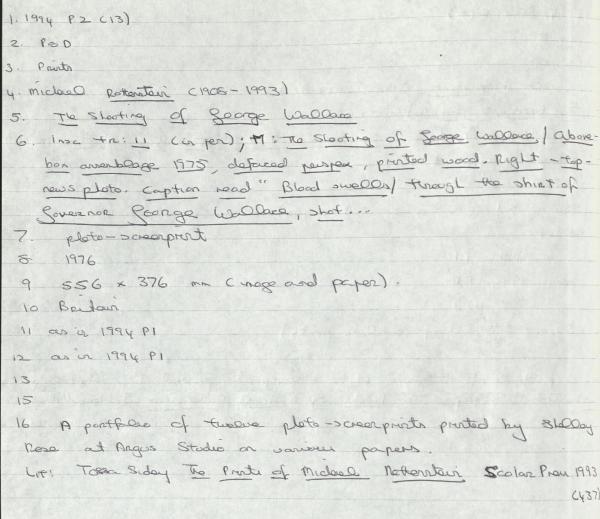 1. 1994 P2 (13)
2. P&D
3. Prints
4. Michael Rothenstein (1908-1993)
5. The Shooting of George Wallace
6. Insc +r: 11 (in per); M: The Shooting of George Wallace / Above-
box assemblage 1975, defaced perspex, printed wood. Right - top-
news photo. Caption read " Blood swells/ through the shirt of
Governor George Wallace, shot...
7. photo-screenprint
8 1976
9 556 x 376 mm (image and paper).
10 Britain
11 as in 1994 P1
12 as in 1994 P1
13
15
16 A portfolio of twelve photo-screenprints printed by Shelley
Rose at Argus Studio on various papers.
Lit: Tessa Sidey The Prints of Michael Rothenstein Scolar Press 1993
(437)